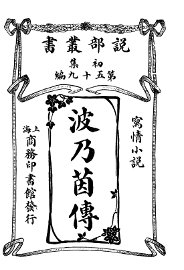 說部叢書
初集
第五十九編
寫情小說
波乃茵傳
上海商務印書館發行